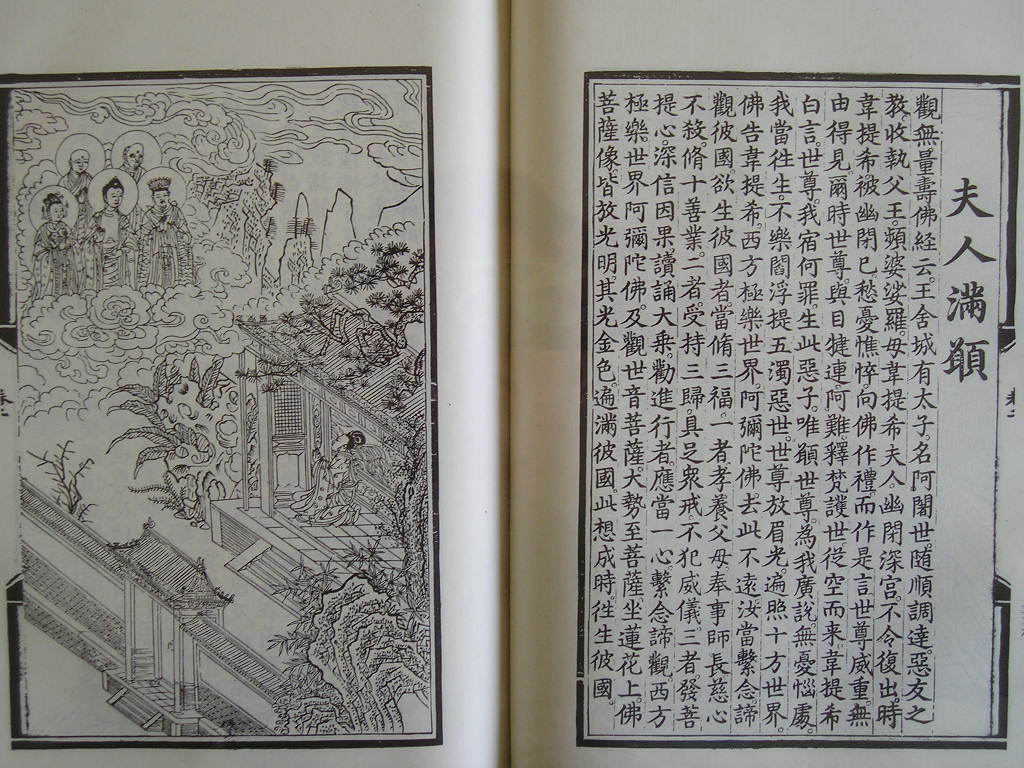 夫人滿願
觀無量壽佛經云。王舍城有太子。名阿闍世。隨順調達惡友之
教。收執父王頻婆娑羅。母韋提希夫人。幽閉深宮。不令復出。時
韋提希被幽閉已。愁憂憔悴。向佛作禮。而作是言。世尊威重。無
由得見。爾時世尊。與目犍連阿難釋梵護世。從空而來。韋提希
白言。世尊。我宿何罪。生此惡子。唯願世尊。為我廣說無憂惱處。
我當往生。不樂閻浮提五濁惡世。世尊放眉光。遍照十方世界。
佛告韋提希。西方極樂世界。阿彌陀佛。去此不遠。汝當繫念諦
觀彼國。欲生彼國者。當脩三福。一者孝養父母。奉事師長。慈心
不殺。脩十善業。二者。受持三歸。具足眾戒。不犯威儀。三者。發菩
提心。深信因果。讀誦大乘。勸進行者。應當一心。繫念諦觀西方
極樂世界阿彌陀佛。及觀世音菩薩。大勢至菩薩。坐蓮花上。佛
菩薩像。皆放光明。其光金色。遍滿彼國。此想成時。往生彼國。